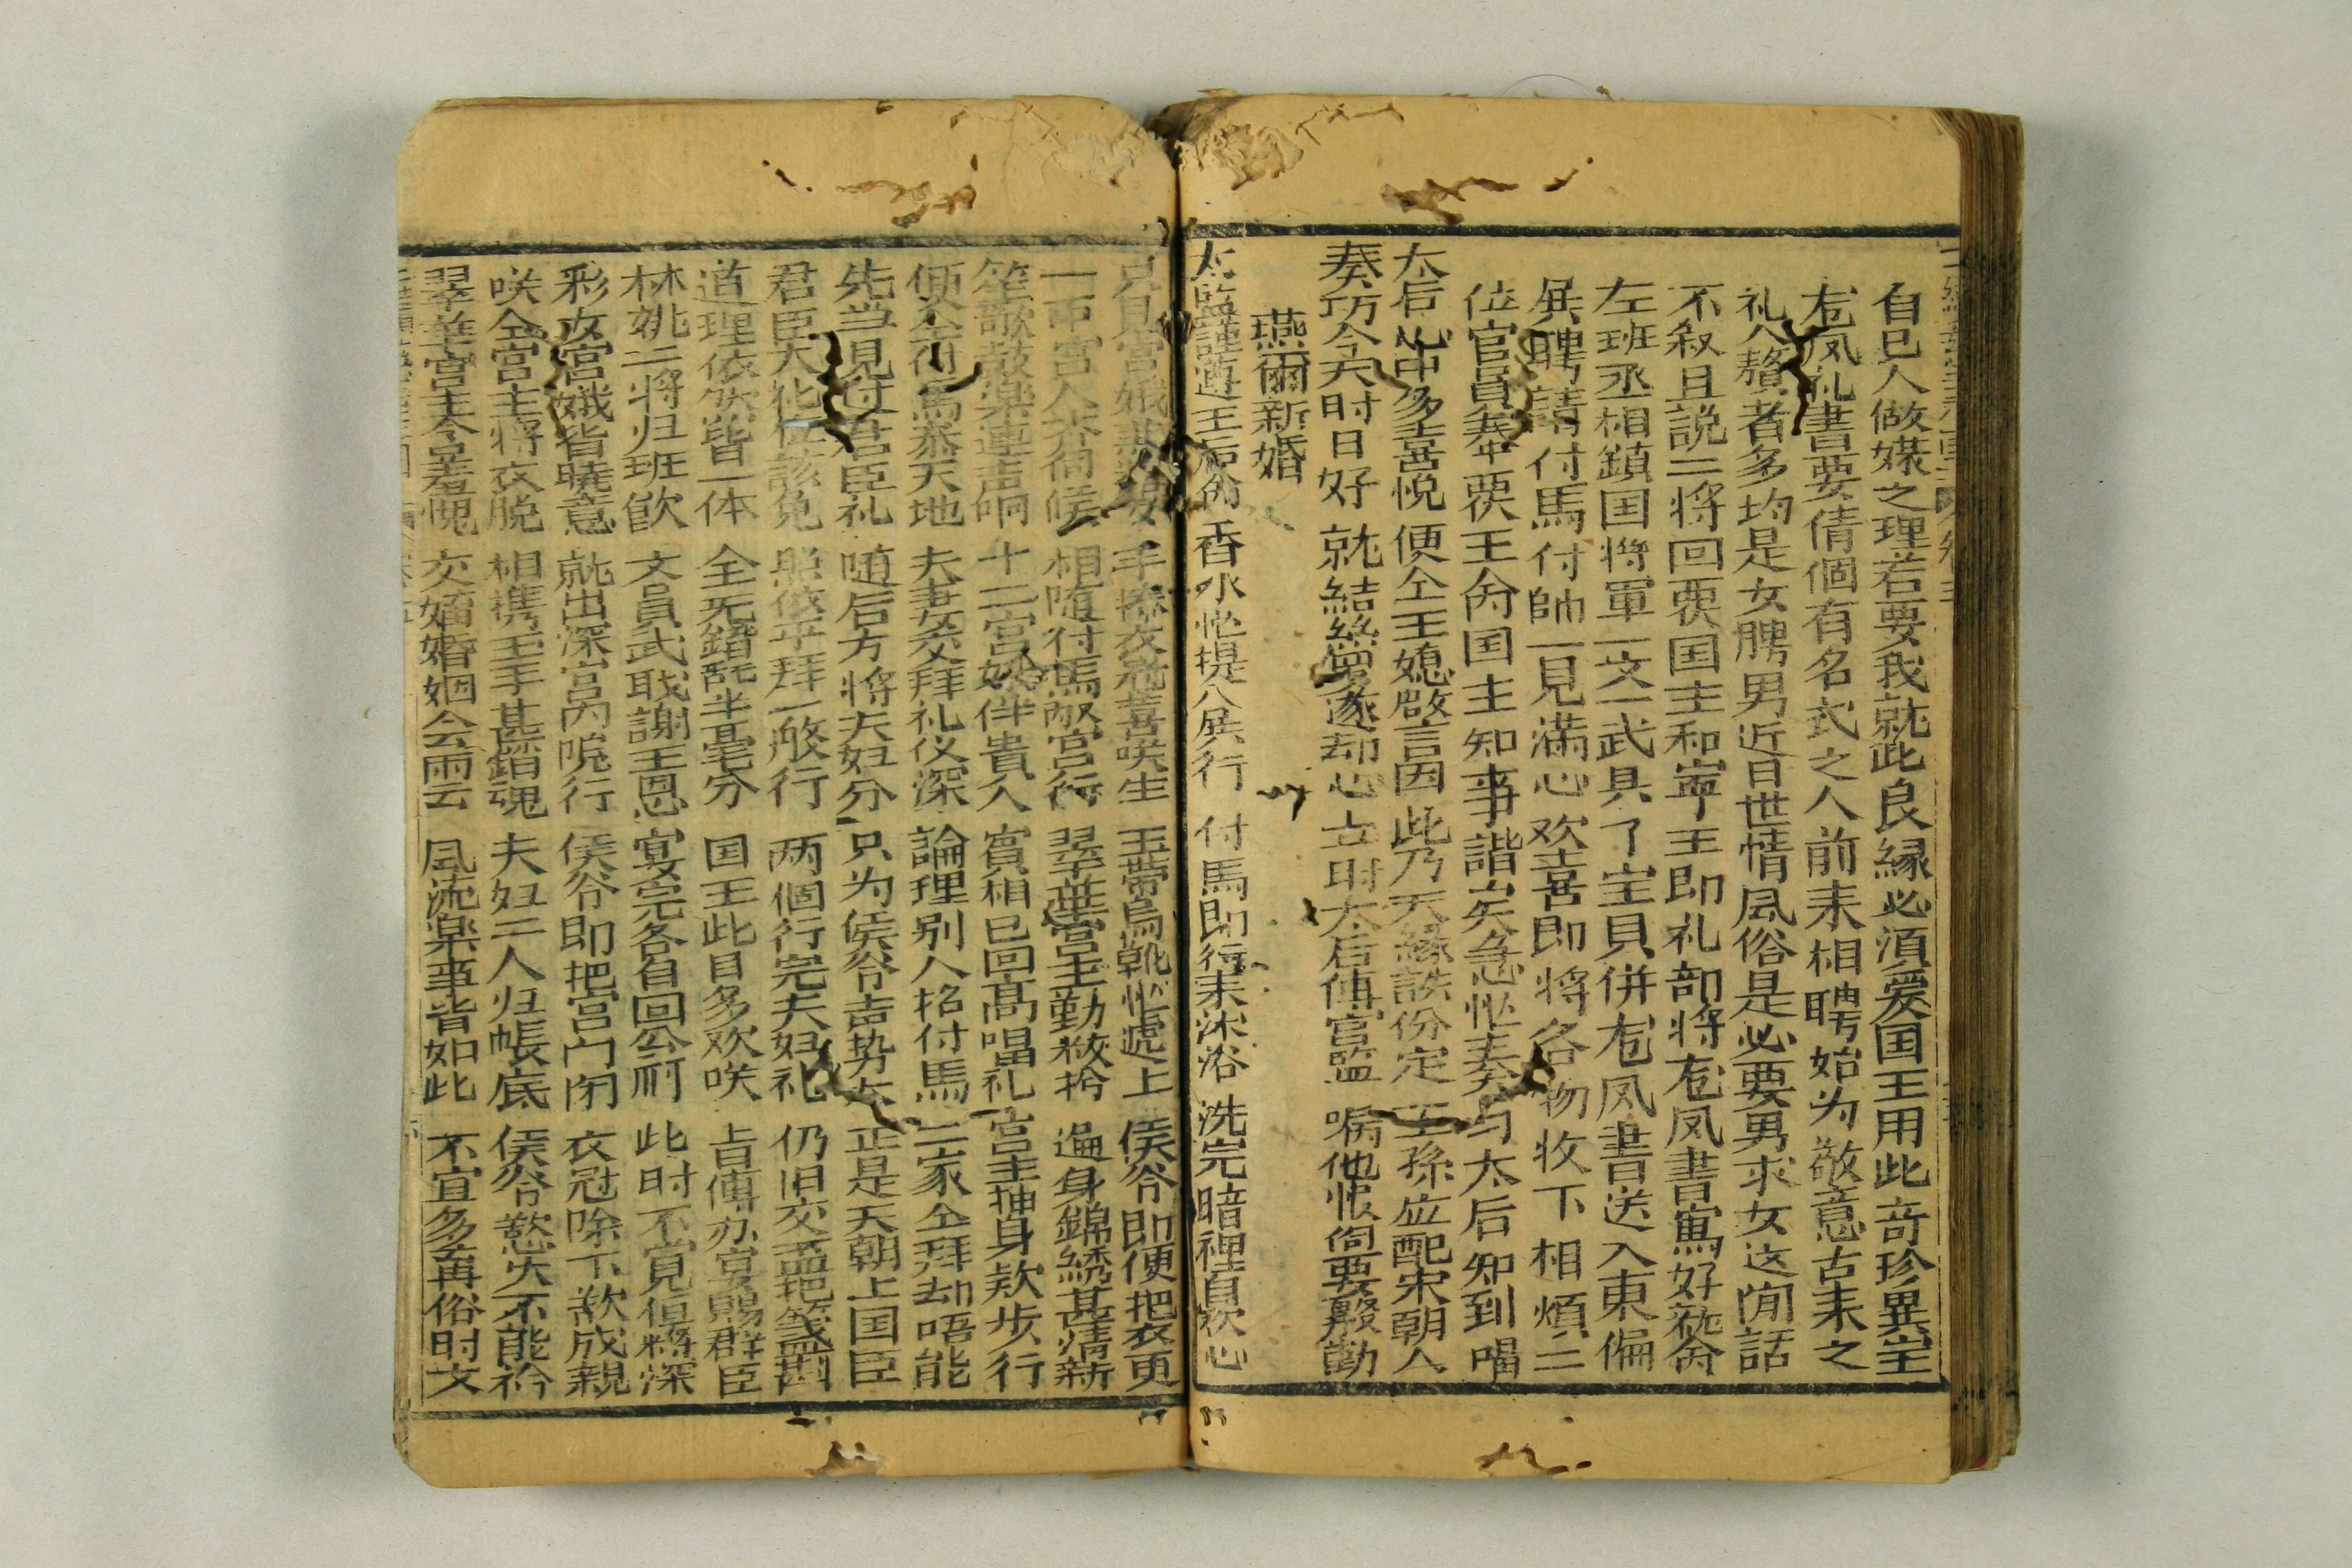 自己人做媒之理若要我就此良緣必須爱国王用此奇珍異宝
庖凤礼書要倩個有名式之人前来相聘始为敬意古来之
礼入贅者多均是女聘男近日世情風俗是必要男求女这閒話
不叙且説二将回覆国主和寧王即礼部将庖凤書寫好就命
左班丞相鎮国将軍一文一武具了宝貝併庖凤書送入東偏
殿聘請付馬付帥一見滿心欢喜即将各物收下相煩二
位官員奉覆王命国主知事諧矣急忙奏与太后知到唱
太后心中多喜悅 便仝王媳啟言因 此乃天緣註份定 王孫应配宋朝人
奏巧今天时日好 就結絲蘿遂却心 立时太后傳宮監 嘱他恨伺要慇勤
燕爾新婚
太監謹遵王后命 香水忙提入殿行 付馬即行来沐浴 洗完暗裡自欢心
只見宮娥 手捧衣冠喜咲生 玉帶烏靴忙遞上 侯爷即便把衣更
一币宮人齐伺候 相随付馬郡宮行 翠華宮主勤梳粉 遍身錦綉甚清新
笙歌鼓楽連声响 十二宮娥伴貴人 賓相已回高唱礼 宮主抻身欵步行
便仝付馬泰天地 夫妻交拜礼仪深 論理别人招付馬 二家仝拜却唔能
先当見过君臣礼 随后方将夫妇分 只为侯爷声势大 正是天朝上国臣
君臣大礼 該免 照依平拜一般行 两個行完夫妇礼 仍旧交盃把盞斟
道理依然皆一体 全无錯乱半毫分 国王此日多欢咲 旨傳办宴賜群臣
林姚二将归班飲 文員武职謝王恩 宴完各自回公衙 此时不覚但将深
彩女宮娥皆曉意 就出深宮内院行 侯爷即把宮门闭 衣冠除下欲成親
咲仝宮主将衣脱 相携玉手甚銷魂 夫妇二人归帳底 侯爷慾火不能衿
翠華宮主含羞愧 交嬉婚姻会雨云 風流楽事皆如此 不宜多再俗时文